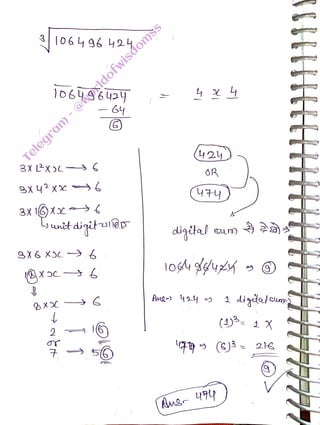 ∛106496424
Telegram - @worldofwisdomss
106 496 424 = 4 x 4
- 64
6
3 x L² x x → 6
3 x 4² x x → 6
3 x 16 x x → 6
unit digit
3 x 6 x x → 6
18 x x → 6
⇓
8 x x → 6
↓
2 → 16
or
7 → 56
424
OR
474
digital sum से देखो
106496424 ⇒ 9
Ans- 424 ⇒ 1 digital sum
(1)³ = 1 X
474 ⇒ (6)³ = 216
9
Ans- 474